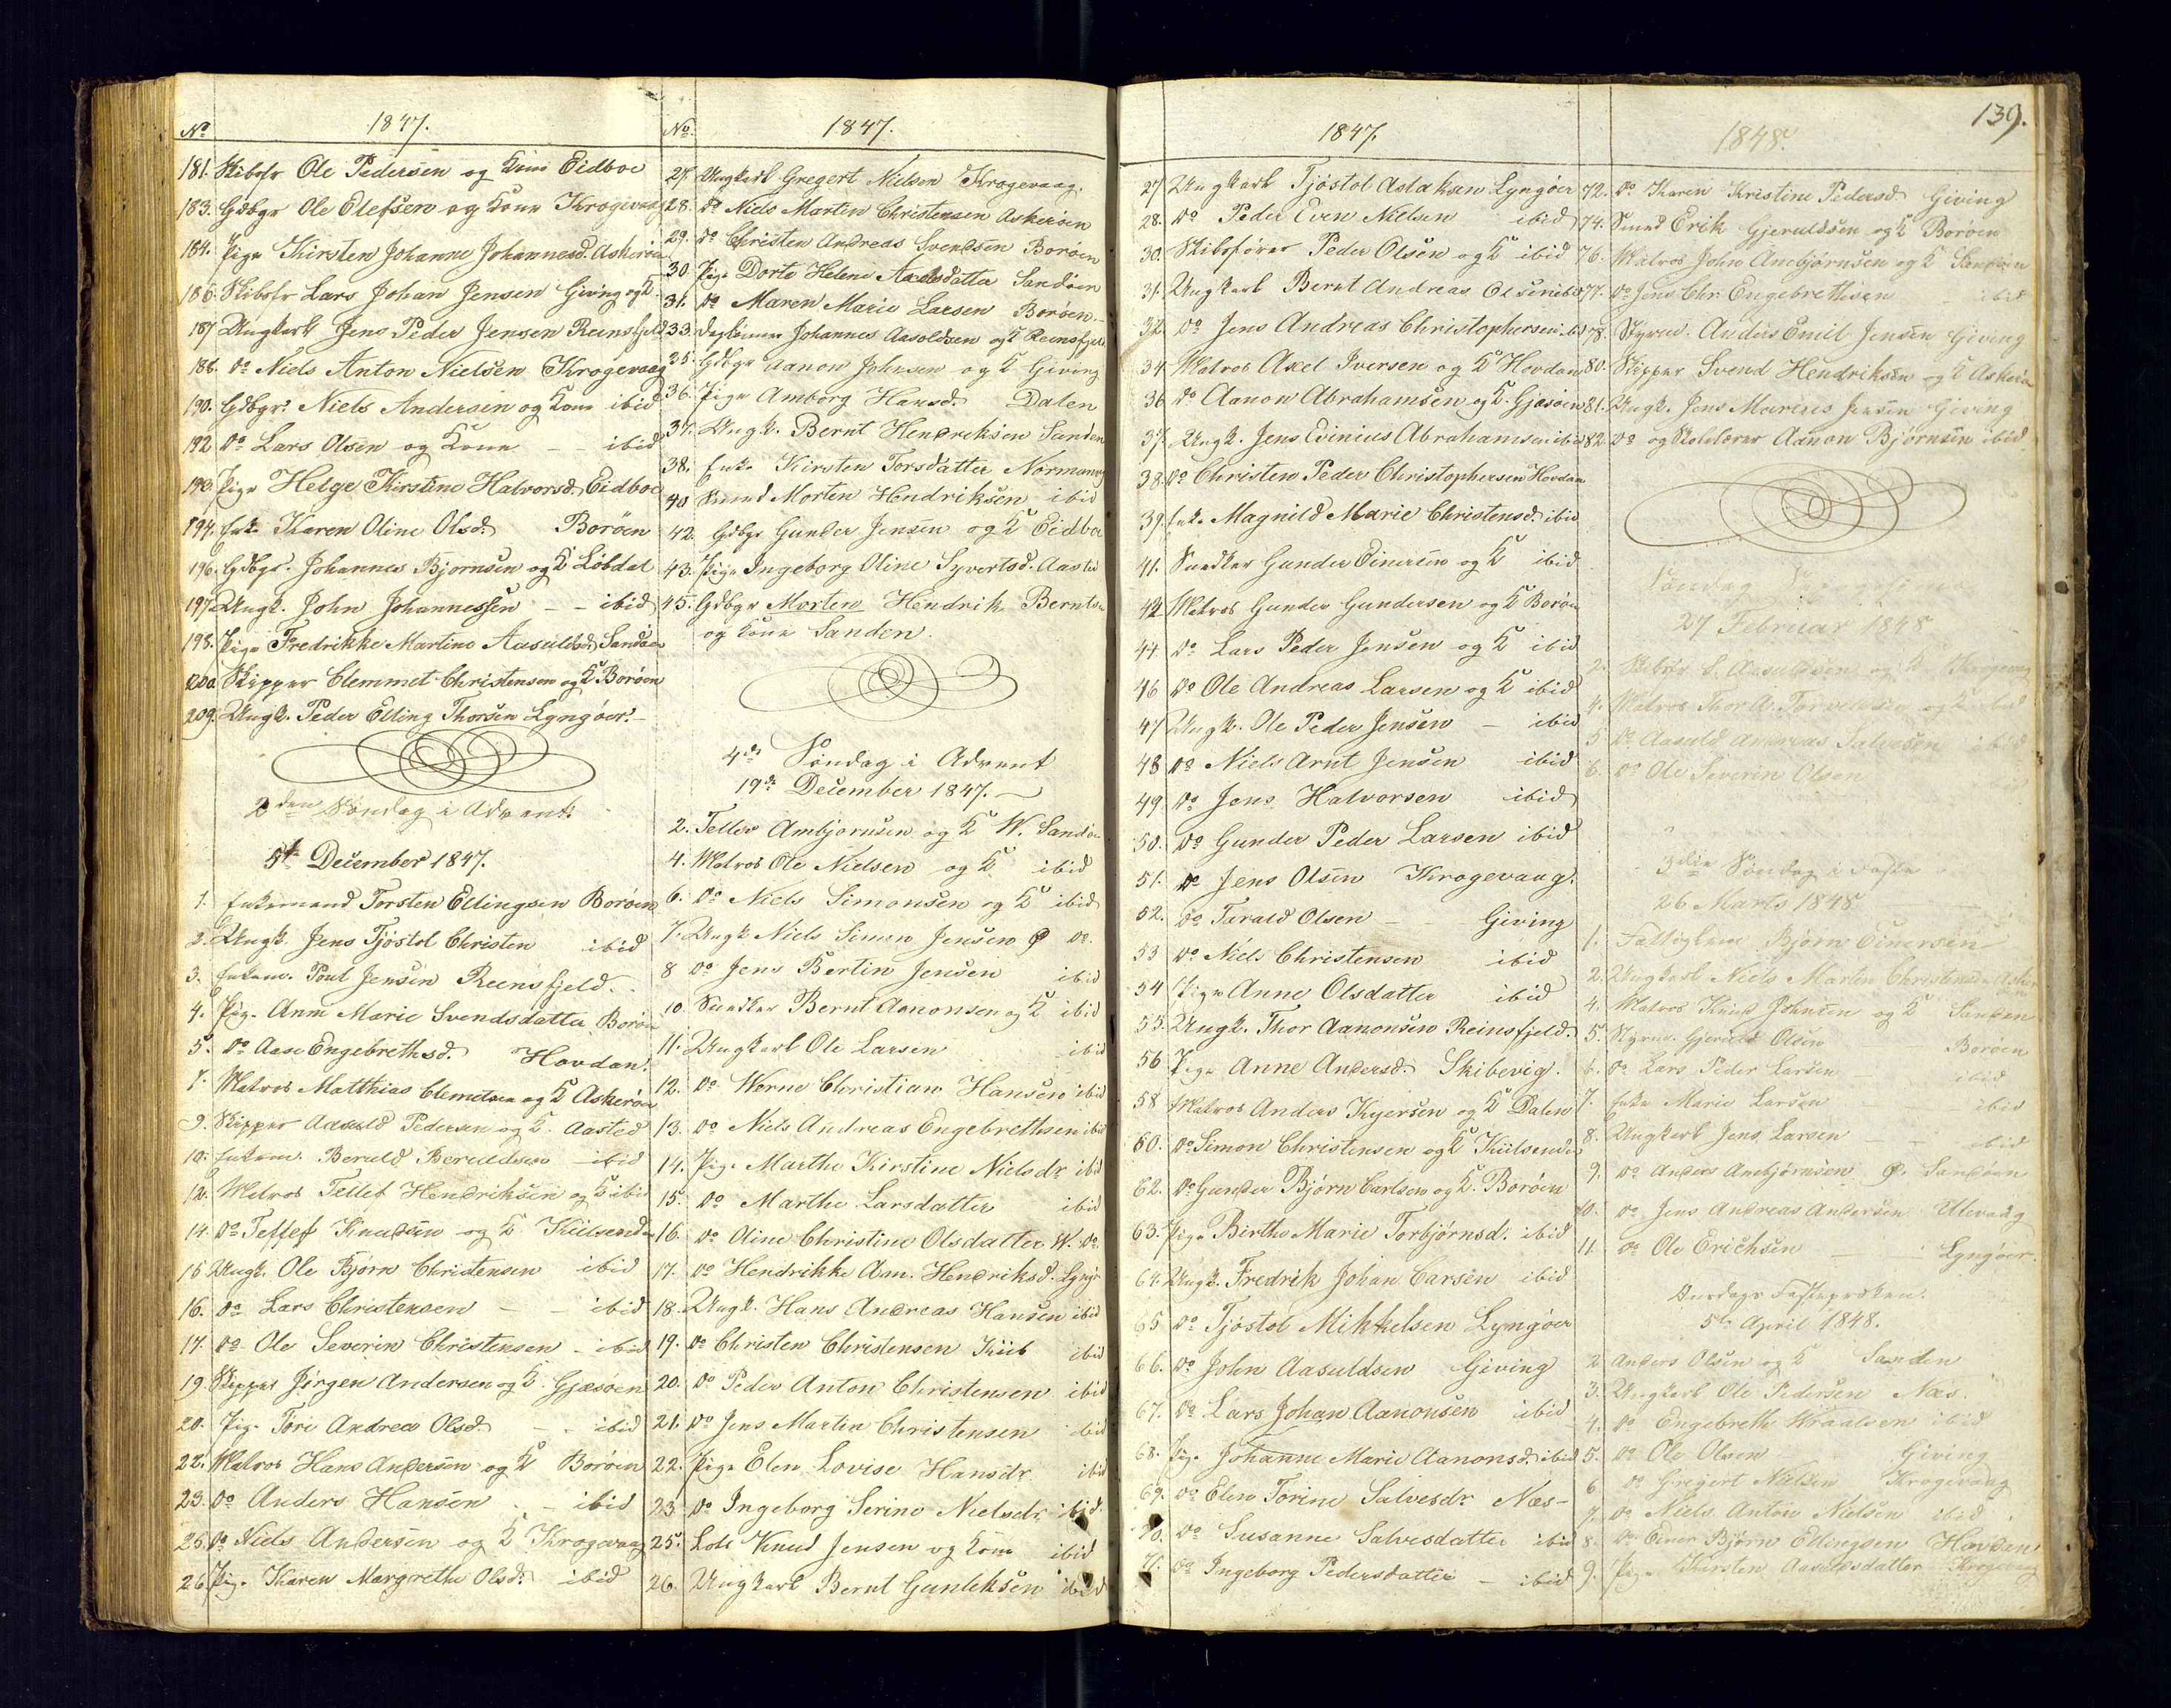 139.
No 1847.
181. Skibsfr Ole Pedersen og Kone Eidboe
183. Gdbgr Ole Elefsen og Kone Krogevaag
184. Pige Kirsten Johanne Johannesd. Askerøen
186. Skibsfr Lars Johan Jensen Giving og K.
187 Ungkarl Jens Peder Jensen Reensfjeld
188. Do Niels Anton Nielsen Krogevaag
190. Gdbgr. Niels Andersen og Kone ibid
192 Do Lars Olsen og Kone - - ibid
193. Pige Helge Kirstine Halvorsd. Eidboe
194. Enke Karen Oline Olsd. Borøen
196. Gdbgr. Johannes Bjornsen og K Løbdal
197. Ungk. John Johannessen - - ibid
198. Pige Fredrikke Martine Aasuldsd. Sandøen
200 Skipper Clemmet Christensen og K Borøen
209. Ungk. Peder Elling Thorsen Lyngøer. -
2den Søndag i Advent
5te December 1847.
1. Enkemand Torsten Ellingsen Borøen
2. Ungk. Jens Tjøstol Christen ibid
3. Enkem. Poul Jensen Reensfjeld.
4. Pig. Anne Marie Svendsdatter Borøen
5. Do Aase Engebrethsd. Hovdan.
7. Matros Matthias Clemetsen og K Askerøen
9. Skipper Aasuld Pedersen og K. Aasted
10. Enkem. Beruld Beruldsen - ibid
12. Matros Tellef Hendriksen og K ibid
14. Do Tellef Knudsen og K Kiilsendal
15 Ungk. Ole Bjørn Christensen ibid
16. Do Lars Christensen - - ibid
17. Do Ole Severin Christensen - ibid
19. Skipper Jørgen Andersen og K. Gjæsøen
20. Pig. Tore Andrea Olsd. - - ibid
22. Matros Hans Andersen og K Borøen
23. Do Anders Hansen - - ibid
25. Do Niels Andersen og K Krogevaag
26. Pig. Karen Margrethe Olsd. ibid
No. 1847.
27. Ungkarl Gregert Nielsen Krogevaag.
28. Do Niels Martin Christensen Askerøen
29. Do Christen Andreas Svendsen Borøen
30. Pige Dorte Helene Axelsdatter Sandøen
31. Do Maren Marie Larsen Borøen -
33. Dagleiemd Johannes Aasoldsen og K Reensfjeld
35. Gdbgr Aanon Johnsen og K Giving
36. Pige Amborg Hansd. Dalen
37. Ungk. Bernt Hendriksen Sanden
38. Enke Kirsten Torsdatter
40 Smed Morten Hendriksen ibid
42. Gdbgr Gunder Jensen og K Eidboe
43. Pige Ingeborg Oline Syvertsd. Aasted
45. Gdbgr Morten Hendrik Berntsen
og Kone Sanden.
4de Søndag i Advent
19de December 1847. -
2. Tellev Ambjørnsen og K W. Sandøen
4. Matros Ole Nielsen og K ibid
6. Do Niels Simonsen og K ibid
7. Ungk Niels Simon Jensen Ø Do.
8 Do Jens Bertin Jensen ibid
10. Snedker Bernt Aanonsen og K ibid
11. Ungkarl Ole Larsen ibid
12. Do Werne Christian Hansen ibid
13. Do Niels Andreas Engebrethsen ibid
14. Pige Marthe Kirstine Nielsdr ibid
15. Do Marthe Larsdatter ibid
16. Do Oline Christine Olsdatter W. Do.
17. Do Hendrikke Aan. Hendriksd. Lyngør
18. Ungk. Hans Andreas Hansen ibid
19. Do Christen Christensen Kiib ibid
20. Do Peder Anton Christensen ibid
21. Do Jens Martin Christensen ibid
22. Pige Elen Lovise Hansdr ibid
23. Do Ingeborg Serine Nielsdr ibid.
25. Lods Knud Jensen og Kone ibid
26. Ungkarl Bernt Gunleksen ibid
1847.
27 Ungkarl Tjøstol Aslaksen Lyngøer
28. Do Peder Even Nielsen ibid
30. Skibsfører Peder Olsen og K ibid
31. Ungkarl Bernt Andreas Olsen ibid
32. Do Jens Andreas Christophersen ibd
34 Matros Axel Iversen og K Hovdan
36 Do Aanon Abrahamsen og K. Gjæsøen
37. Ungk. Jens Evinius Abrahamsen ibid
38. Do Christen Peder Christophersen Hovdan
39. Enke Magnild Marie Christensd. ibid
41. Snedker Gunder Einersen og K ibid
42 Matros Gunder Gundersen og K Borøen
44. Do Lars Peder Jensen og K ibid
46 Do Ole Andreas Larsen og K ibid
47 Ungk. Ole Peder Jensen - ibid
48 Do Niels Arnt Jensen ibid
49 Do Jens Halvorsen ibid
50. Do Gunder Peder Larsen ibid
51. Do Jens Olsen Krogevaag.
52. Do Terald Olsen - - Giving
53 Do Niels Christensen ibid
54 Pige Anne Olsdatter ibid
55. Ungk. Thor Aanonsen Reinsfjeld.
56 Pige Anne Andersd. Skibevig.
58 Matros Anders Kyersen og K Dalen
60. Do Simon Christensen og K Kiilsendal
62. Do Gunder Bjørn Carlsen og K. Borøen
63. Pige Birthe Marie Torbjørnsd. ibid
64. Ungk. Fredrik Johan Carsen ibid
65 Do Tjøstol Mikkelsen Lyngøer
66. Do John Aasuldsen Giving
67. Do Lars Johan Aanonsen ibid
68. Pige Johanne Marie Aanonsd. ibid
69. Do Elen Torine Salvesdr Næs -
70. Do Susanne Salvesdatter ibid
71. Do Ingeborg Pedersdatter - ibid
1848.
72. Do Karen Kristine Pedersd. Giving
74. Smed Erik Gjeruldsen og K Borøen
76. Matros John Ambjørnsen og K Sandøen
77. Do Jens Chr. Engebrethsen ibid
78. Styrm. Anders Emil Jensen Giving
80. Skipper Svend Hendriksen og K Askerøen
81. Ungk. Jens Marius Jensen Giving
82. Do og Skolelærer Aanon Bjørnsen ibid
Søndag
27 Februar 1848
2. Skibsfr S. Aasuldsen og K Krogevaag
4. Matros Thor A. og K ibid
5 Do Aasuld Andreas Salvesen ibid
6. Do Ole Severin Olsen
3die Søndag i Faste
26 Marts 1848
1. Fattiglem Bjørn Einersen
2. Ungkarl Niels Martin Christensen Askerøen
4. Matros Knud Johnsen og K Sanden
5. Styrm. Gjeruld Olsen Borøen
6. Do Lars Peder Larsen ibid
7. Enke Marie Larsen ibid
8. Ungkarl Jens Larsen - - ibid
9. Do Anders Ambjørnsen Ø. Sandøen
10. Do Jens Andreas Andersen Ulevaag
11. Do Ole Erichsen - Lyngøer.
Onsdags Fastepræken.
5te April 1848.
2 Anders Olsen og K Sanden
3. Ungkarl Ole Pedersen Næs.
4. Do Engebreth ibid
5. Do Ole Olsen Giving
6. Do Gregert Nielsen Krogevaag
7. Do Niels Anton Nielsen ibid
8. Do Einer Bjørn Ellingsen Hovdan
9. Pige Kirsten Aasuldsdatter Krogevaag